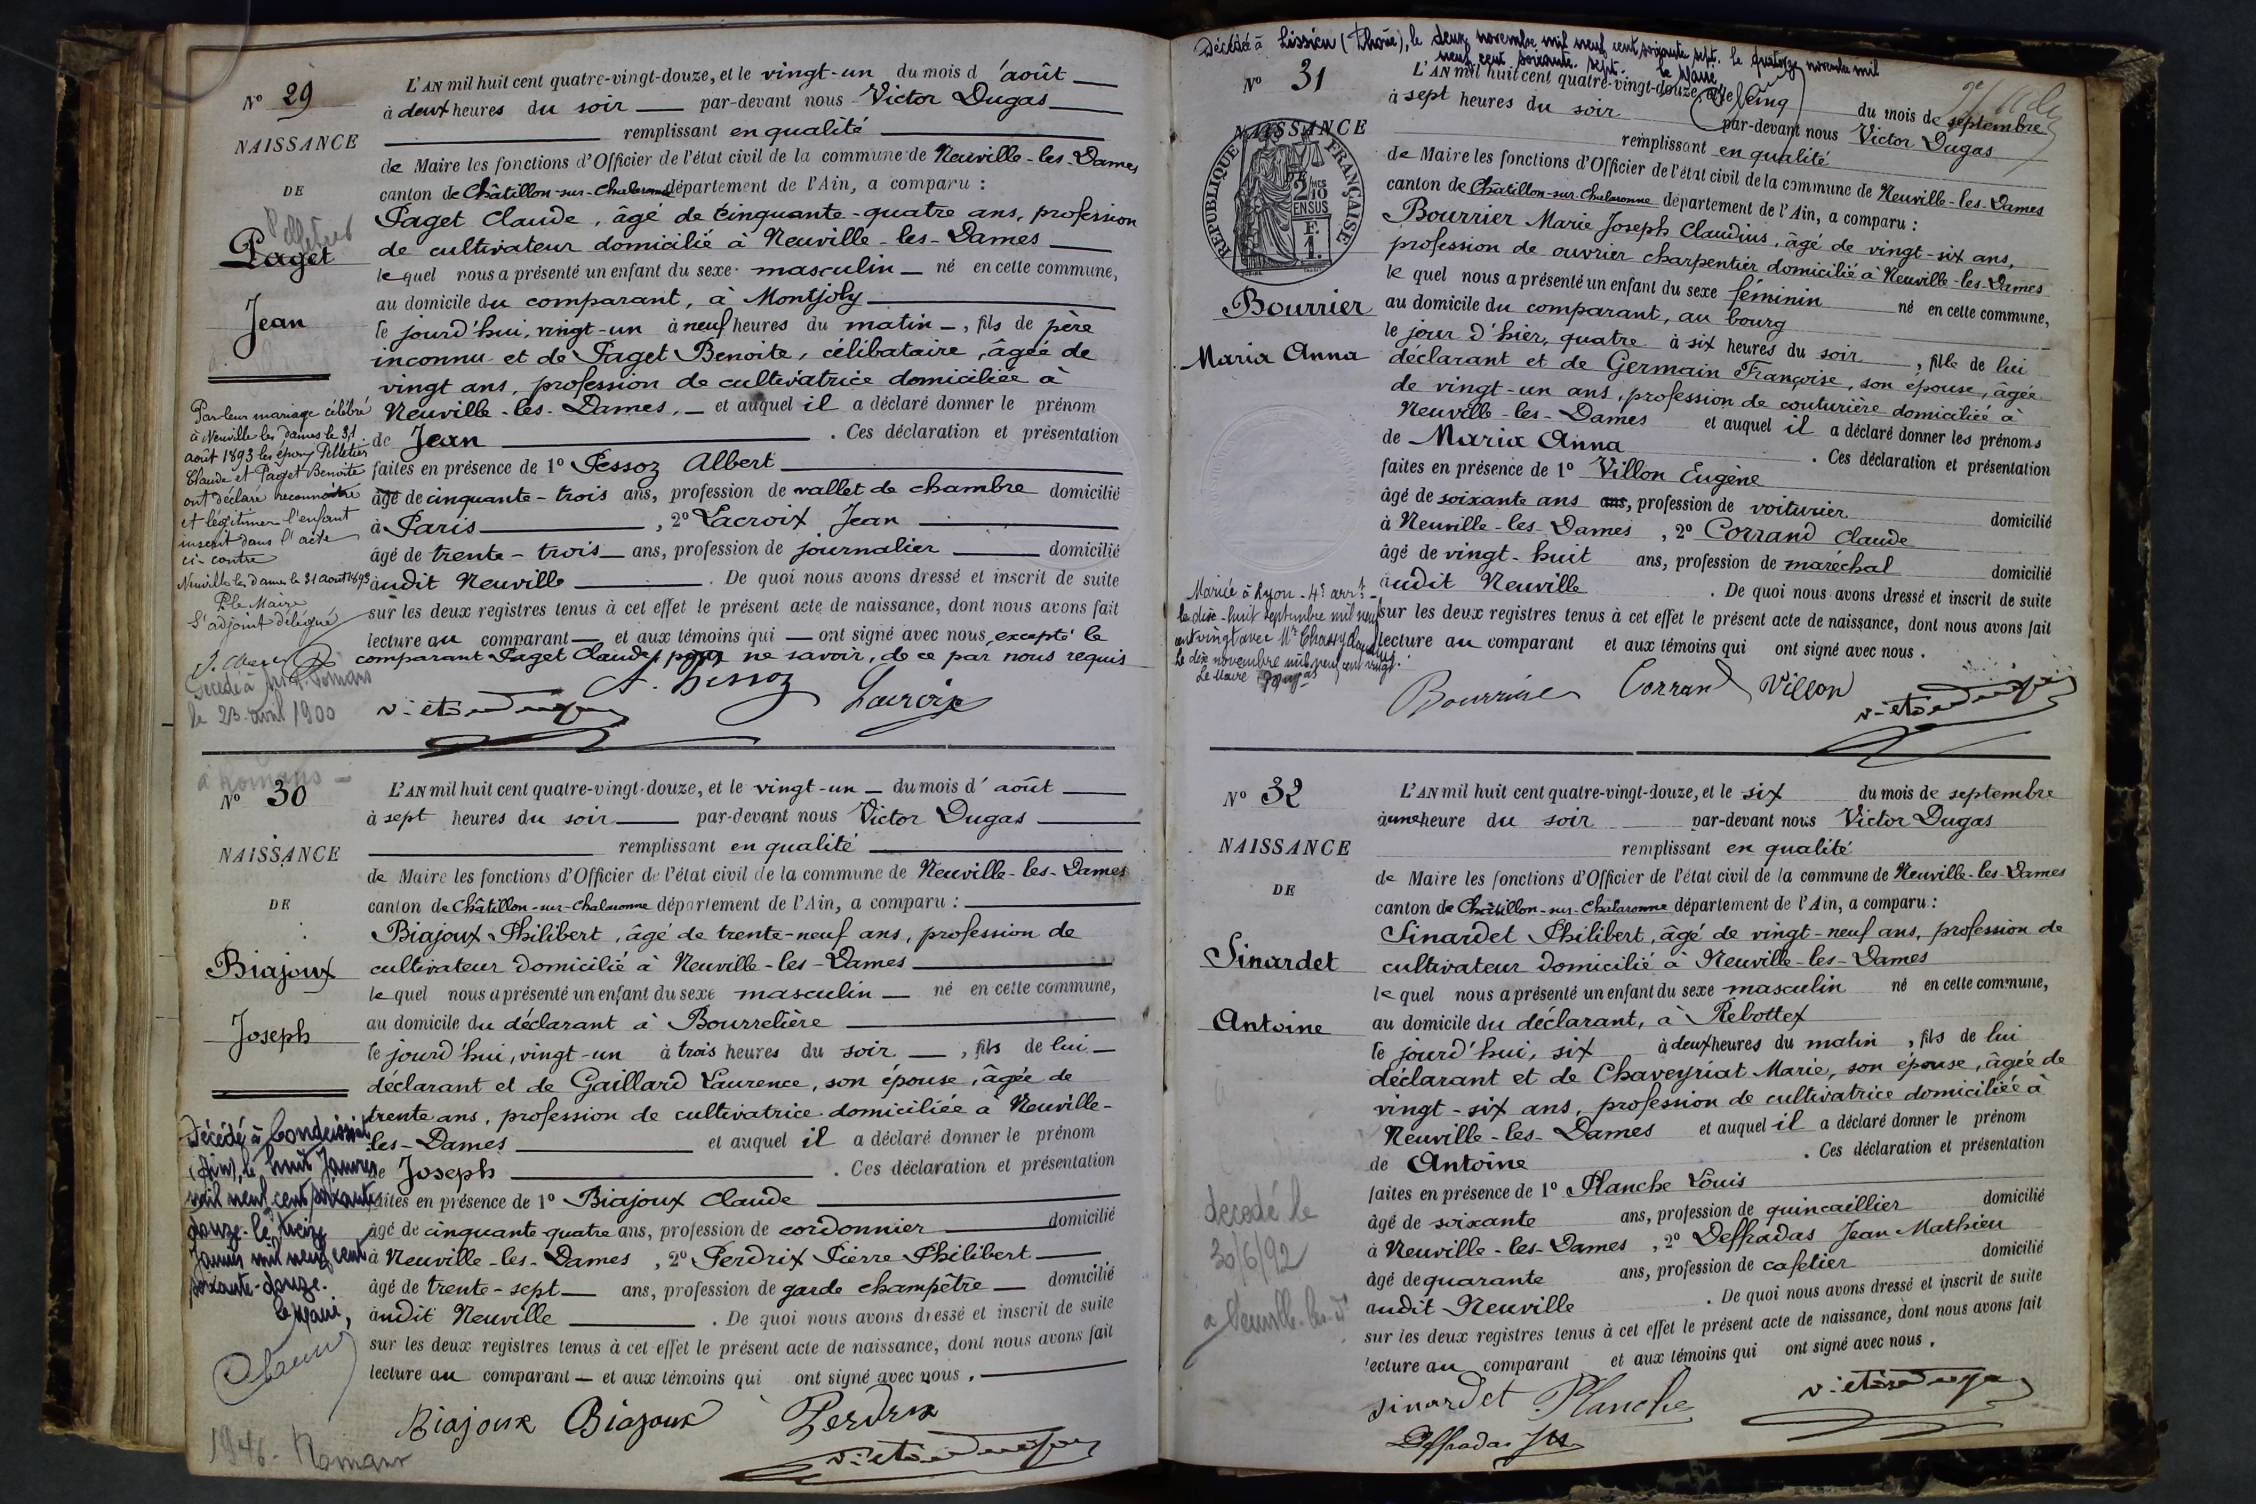 N° 29
NAISSANCE
DE
Pelletier
Paget
Jean
L'AN mil huit cent quatre-vingt-douze, et le vingt-un du mois d'août
à deux heures du soir par-devant nous Victor Dugas
remplissant en qualité
de Maire les fonctions d'Officier de l'état civil de la commune de Neuville-les-Dames
canton de Châtillon-sur-Chalaronne département de l'Ain, a comparu :
Paget Claude, âgé de cinquante-quatre ans, profession
de cultivateur domicilié à Neuville-les-Dames
lequel nous a présenté un enfant du sexe masculin né en cette commune,
au domicile du comparant, à Montjoly
le jourd'hui, vingt-un à neuf heures du matin, fils de père
inconnu et de Paget Benoite, célibataire, âgée de
vingt ans, profession de cultivatrice domiciliée à
Neuville-les-Dames, et auquel il a déclaré donner le prénom
de Jean . Ces déclaration et présentation
faites en présence de 1° Pessoz Albert
âgé de cinquante-trois ans, profession de vallet de chambre domicilié
à Paris , 2° Lacroix Jean
âgé de trente-trois ans, profession de journalier domicilié
audit Neuville . De quoi nous avons dressé et inscrit de suite
sur les deux registres tenus à cet effet le présent acte de naissance, dont nous avons fait
lecture au comparant et aux témoins qui ont signé avec nous, excepté le
comparant Paget Claude, pour ne savoir, de ce par nous requis
A. Pessoz
Lacroix
Victor Dugas
Par leur mariage célébré
à Neuville les Dames le 31
août 1893 les époux Pelletier
Claude et Paget Benoite
ont déclaré reconnaître
et légitimer l'enfant
inscrit dans l'acte
ci-contre
Neuville les Dames le 31 août 1893
P. le Maire
L'adjoint délégué
Décédé à Romans
le 23 avril 1900
à Romans
N° 30
NAISSANCE
DE
Biajoux
Joseph
L'AN mil huit cent quatre-vingt-douze, et le vingt-un du mois d'août
à sept heures du soir par-devant nous Victor Dugas
remplissant en qualité
de Maire les fonctions d'Officier de l'état civil de la commune de Neuville-les-Dames
canton de Châtillon-sur-Chalaronne département de l'Ain, a comparu :
Biajoux Philibert, âgé de trente-neuf ans, profession de
cultivateur domicilié à Neuville-les-Dames
lequel nous a présenté un enfant du sexe masculin né en cette commune,
au domicile du déclarant à Bourrelière
le jourd'hui, vingt-un à trois heures du soir, fils de lui
déclarant et de Gaillard Laurence, son épouse, âgée de
trente ans, profession de cultivatrice domiciliée à Neuville-
les-Dames et auquel il a déclaré donner le prénom
de Joseph . Ces déclaration et présentation
faites en présence de 1° Biajoux Claude
âgé de cinquante quatre ans, profession de cordonnier domicilié
à Neuville-les-Dames , 2° Perdrix Pierre Philibert
âgé de trente-sept ans, profession de garde champêtre domicilié
audit Neuville . De quoi nous avons dressé et inscrit de suite
sur les deux registres tenus à cet effet le présent acte de naissance, dont nous avons fait
lecture au comparant et aux témoins qui ont signé avec nous.
Biajoux Biajoux Perdrix
Victor Dugas
Décédé à Condeissiat
(Ain), le huit Janvier
mil neuf cent soixante
douze. le treize
Janvier mil neuf cent
soixante-douze.
Le Maire,
1946. Romans
Décédée à Lissieu (Rhône), le deux novembre mil neuf cent soixante sept. le quatorze novembre mil
neuf cent soixante sept. Le Maire
N° 31
NAISSANCE
RÉPUBLIQUE FRANÇAISE
2/10 EN SUS
Bourrier
Maria Anna
L'AN mil huit cent quatre-vingt-douze, et le cinq du mois de septembre
à sept heures du soir par-devant nous Victor Dugas
remplissant en qualité
de Maire les fonctions d'Officier de l'état civil de la commune de Neuville-les-Dames
canton de Châtillon-sur-Chalaronne département de l'Ain, a comparu :
Bourrier Marie Joseph Claudius, âgé de vingt-six ans,
profession de ouvrier charpentier domicilié à Neuville-les-Dames
lequel nous a présenté un enfant du sexe féminin né en cette commune,
au domicile du comparant, au bourg
le jour d'hier, quatre à six heures du soir , fille de lui
déclarant et de Germain Françoise, son épouse, âgée
de vingt-un ans, profession de couturière domiciliée à
Neuville-les-Dames et auquel il a déclaré donner les prénoms
de Maria Anna . Ces déclaration et présentation
faites en présence de 1° Villon Eugène
âgé de soixante ans ans, profession de voiturier domicilié
à Neuville-les-Dames , 2° Corrand Claude
âgé de vingt-huit ans, profession de maréchal domicilié
audit Neuville . De quoi nous avons dressé et inscrit de suite
sur les deux registres tenus à cet effet le présent acte de naissance, dont nous avons fait
lecture au comparant et aux témoins qui ont signé avec nous.
Bourrier Corrand Villon
Victor Dugas
Mariée à Lyon - 4e arrt -
le dix-huit septembre mil neuf
cent vingt avec Mr Chassy
Le dix novembre mil neuf cent vingt.
Le Maire Dugas
N° 32
NAISSANCE
DE
Sinardet
Antoine
L'AN mil huit cent quatre-vingt-douze, et le six du mois de septembre
à une heure du soir par-devant nous Victor Dugas
remplissant en qualité
de Maire les fonctions d'Officier de l'état civil de la commune de Neuville-les-Dames
canton de Châtillon-sur-Chalaronne département de l'Ain, a comparu :
Sinardet Philibert, âgé de vingt-neuf ans, profession de
cultivateur domicilié à Neuville-les-Dames
lequel nous a présenté un enfant du sexe masculin né en cette commune,
au domicile du déclarant, à Rebottex
le jourd'hui, six à deux heures du matin , fils de lui
déclarant et de Chaveyriat Marie, son épouse, âgée de
vingt-six ans, profession de cultivatrice domiciliée à
Neuville-les-Dames et auquel il a déclaré donner le prénom
de Antoine . Ces déclaration et présentation
faites en présence de 1° Planche Louis
âgé de soixante ans, profession de quincaillier domicilié
à Neuville-les-Dames , 2° Deffradas Jean Mathieu
âgé de quarante ans, profession de cafetier domicilié
audit Neuville . De quoi nous avons dressé et inscrit de suite
sur les deux registres tenus à cet effet le présent acte de naissance, dont nous avons fait
lecture au comparant et aux témoins qui ont signé avec nous.
Sinardet Planche
Victor Dugas
Deffradas
decedé le
30/6/92
a Neuville-les-D